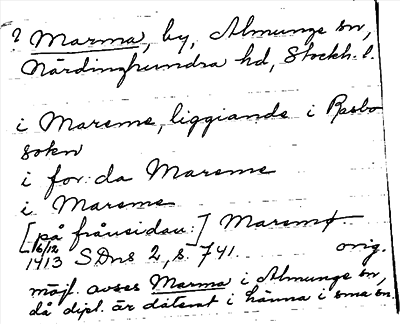 ? Marma, by, Almunge sn,
Närdinghundra hd, Stockh. l.
i Marsme, liggiande i Rasbo
sokn
i for:da Marsme
i Marsme
[på frånsidan:] Marsmø.
16/12 1413 SDns 2, s. 741. orig.
möjl. avses Marma i Almunge sn,
då dipl. är daterat i hänna i sma sn.